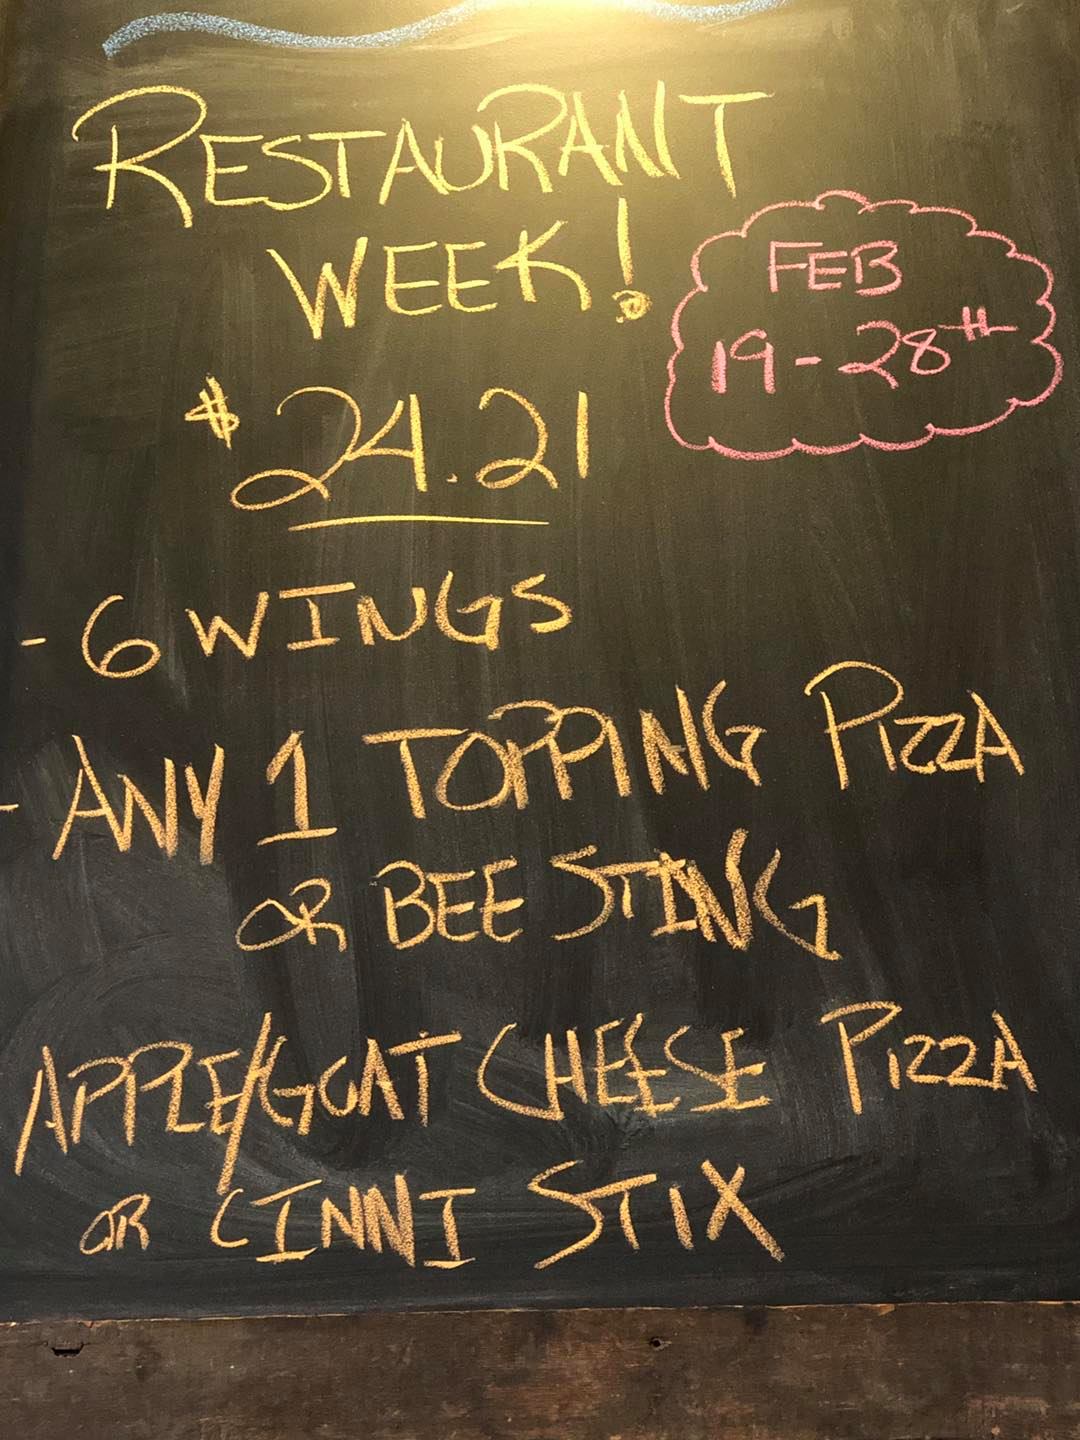 RESTAURANT
WEEK!
FEB
19-28TH
$24.21
- 6 WINGS
- ANY 1 TOPPING PIZZA
OR BEE STING
APPLE/GOAT CHEESE PIZZA
OR CINNI STIX